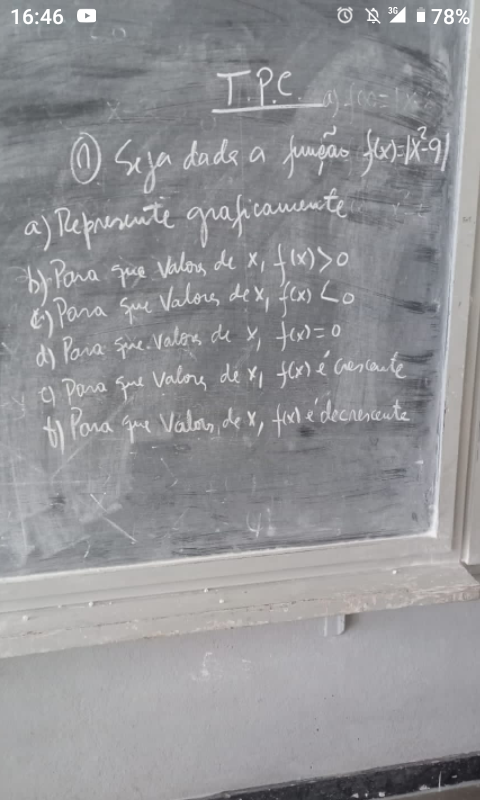 16:46 3G 78%
T.P.C.
① Seja dada a função f(x)=|x²-9|
a) Represente graficamente
b) Para que valores de x, f(x)>0
c) Para que Valores de x, f(x) <0
d) Para que valores de x, f(x)=0
e) Para que Valores de x, f(x) é crescente
f) Para que Valores de x, f(x) é decrescente